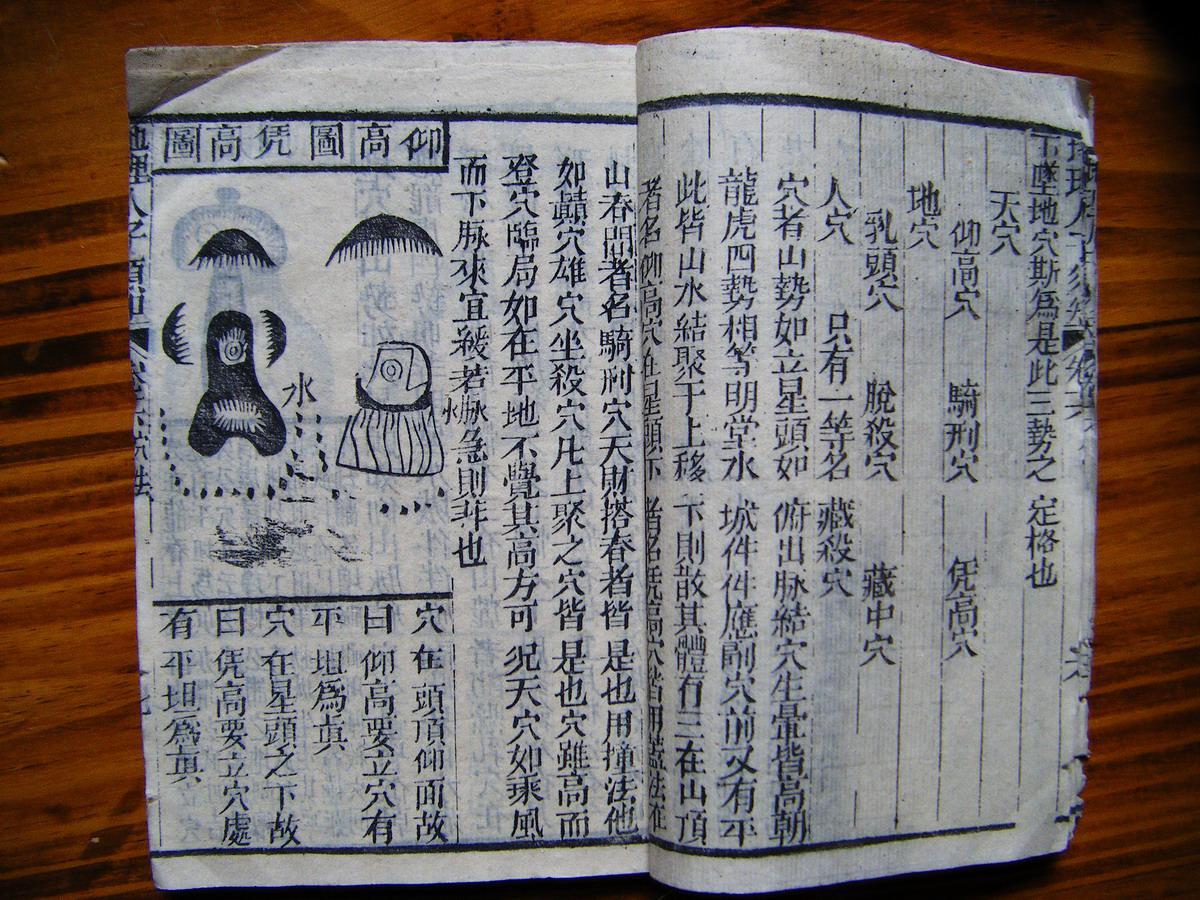 下墜地穴斯爲是此三勢之定格也
天穴
仰高穴 騎刑穴 凭高穴
地穴
乳頭穴 脫殺穴 藏中穴
人穴 只有一等名藏殺穴
穴者山勢如立星頭如俯出脉結穴生暈皆高朝
龍虎四勢相等明堂水城件件應副穴前又有平
此皆山水結聚于上移下則散其體有三在山頂
者名仰高穴在星頭下者名凭高穴皆用蓋法在
山春間者名騎刑穴天財搭春者皆是也用撞法他
如巔穴雄穴坐殺穴凡上聚之穴皆是也穴雖高而
登穴臨局如在平地不覺其高方可况天穴如乘風
而下脉來宜緩若脉急則非也
仰高圖
凭高圖
水
穴在頭頂仰面故
曰仰高要立穴有
平坦爲眞
穴在星頭之下故
曰凭高要立穴處
有平坦爲眞